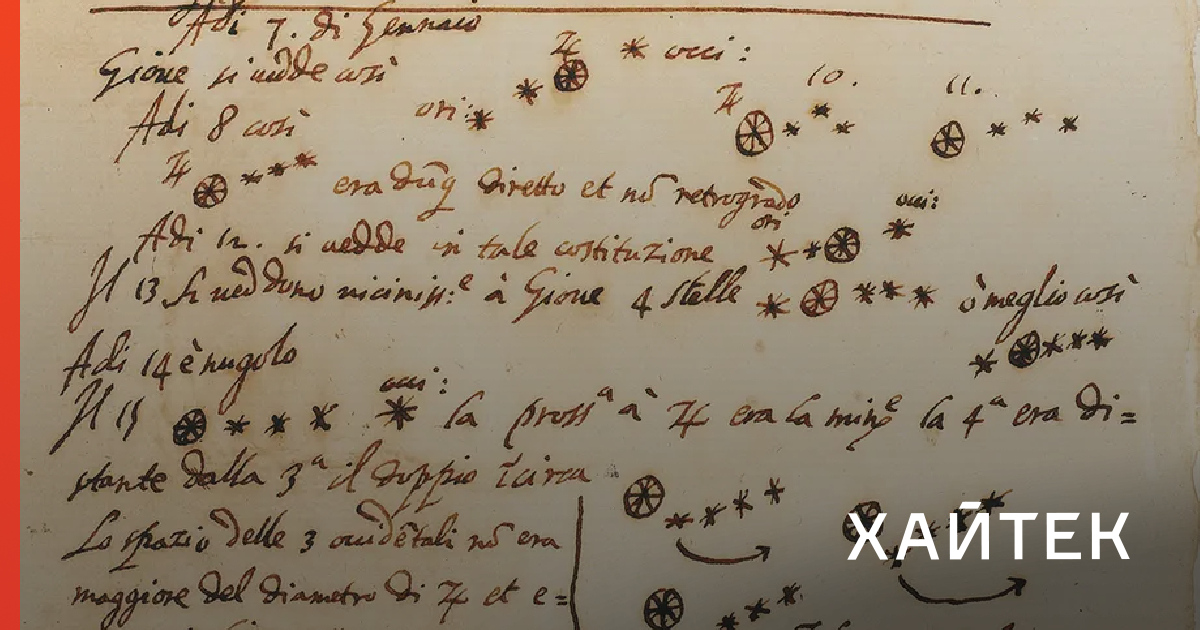 Adi 7. di Gennaio
Giove si vedde così ♃ occi:
Adi 8 così ori: ♃ 10. 11.
♃ era dūq diretto et nō retrogrado
occi:
Adi 12. si vedde in tale costituzione ori
Il 13 si veddono viciniss:e à Giove 4 stelle ò meglio così
Adi 14 è nugolo
occi:
Il 15 la prossa à ♃ era la mine la 4a era di=
stante dalla 3a il doppio circa
Lo spazio delle 3 occidētali nō era
maggiore del diametro di ♃ et e=
ХАЙТЕК